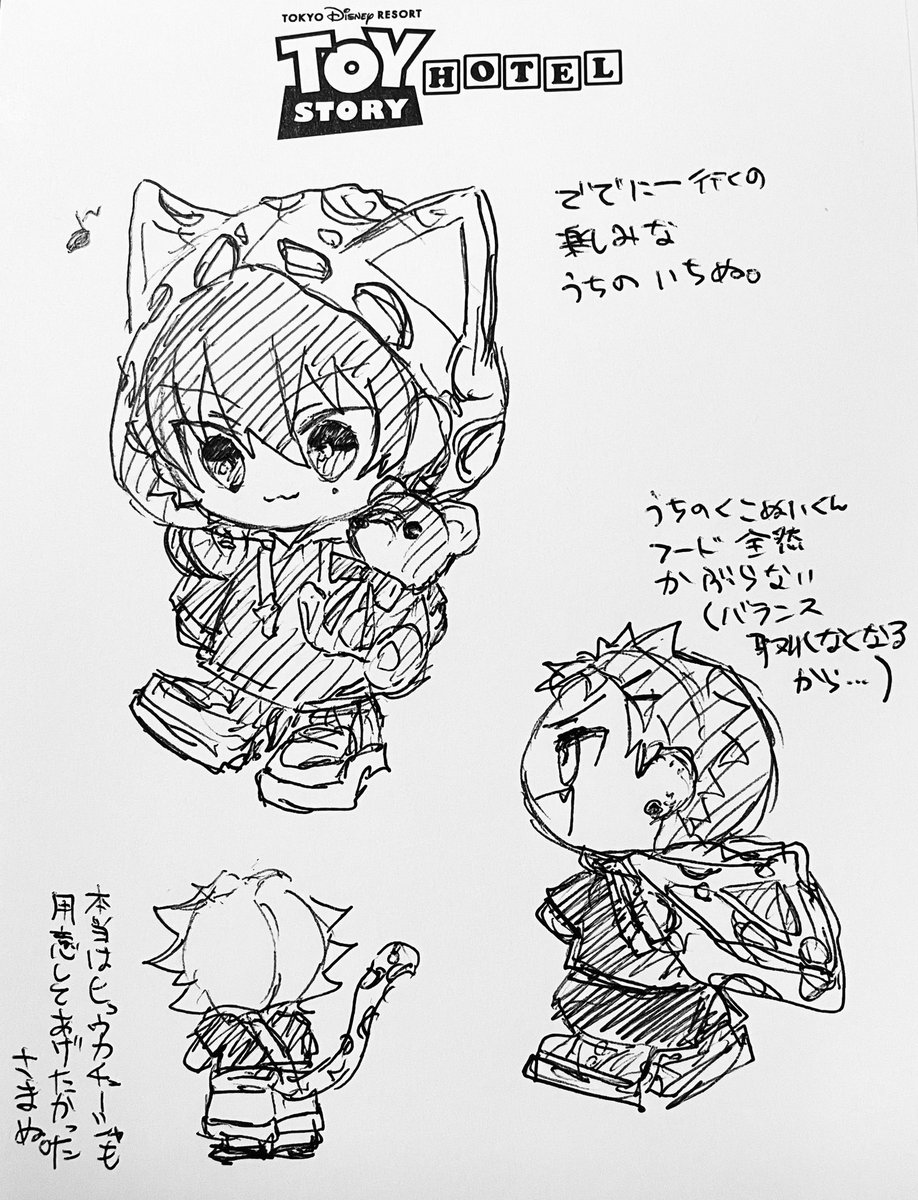 TOKYO Disney RESORT
TOY
STORY
HOTEL
ででにー行くの
楽しみな
うちの いちぬ。
うちのくこぬいくん
フード 全然
かぶらない
(バランス
取れなくなる
から…)
本当はヒョウカチューシャも
用意してあげたかった
さまぬ。